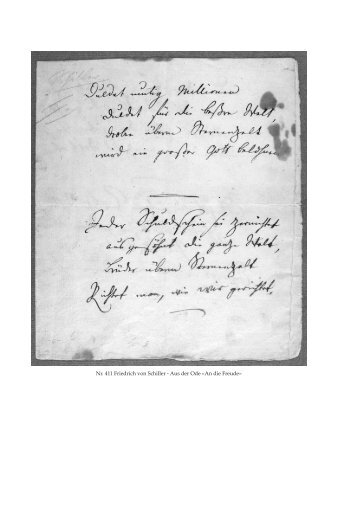 Duldet mutig Millionen
duldet für die beßre Welt,
droben überm Sternenzelt
wird ein großer Gott belohnen
Jeder Schuldschein sei zernichtet
ausgesöhnt die ganze Welt,
Brüder überm Sternenzelt
Richtet man, wie wir gerichtet.
Nr. 411 Friedrich von Schiller - Aus der Ode »An die Freude«